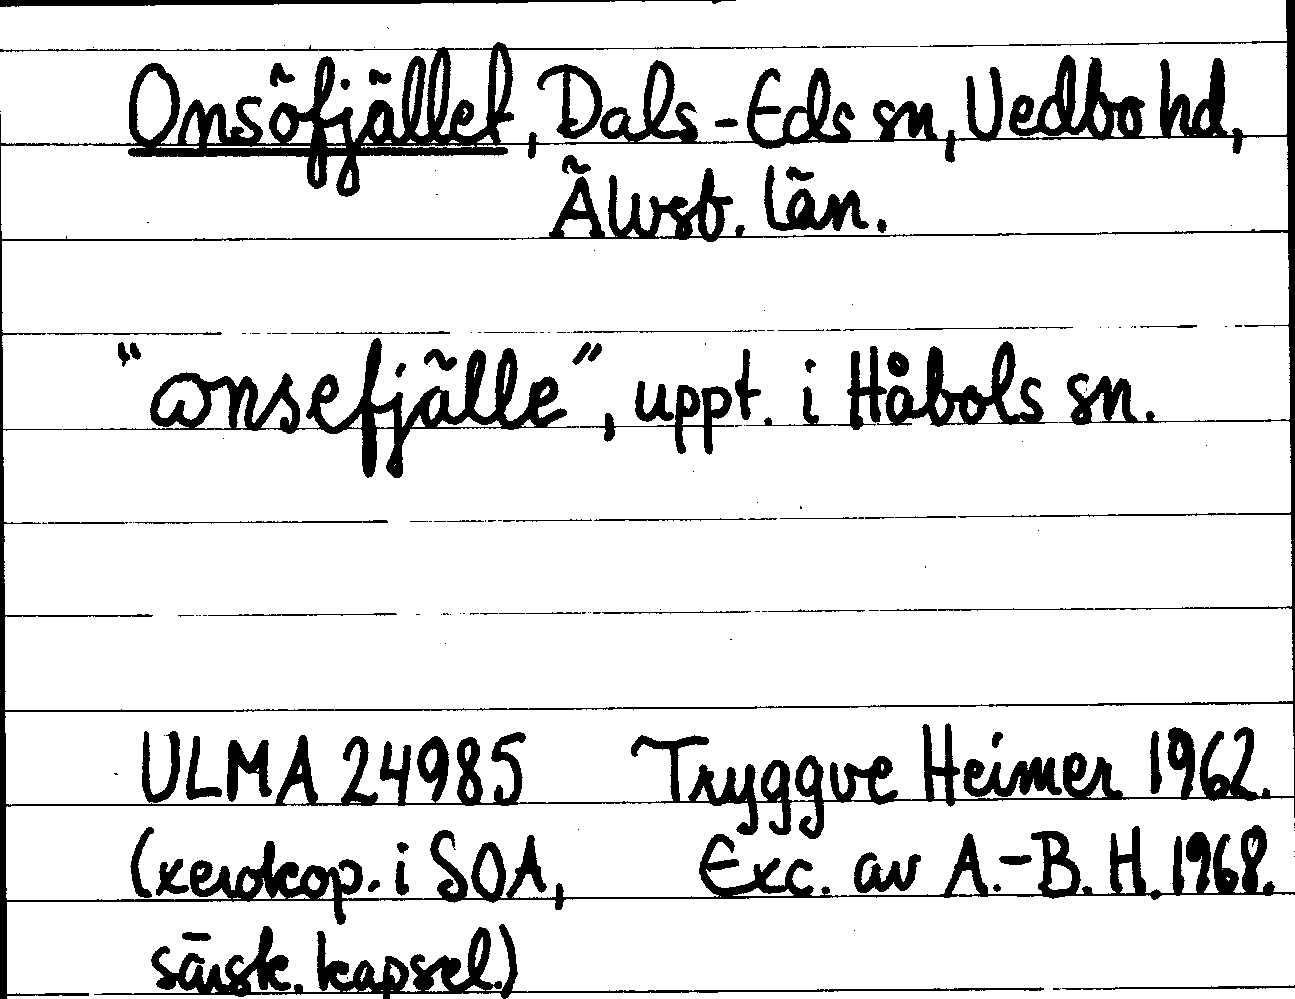 Onsöfjället, Dals-Eds sn, Vedbo hd,
Älvsb. län.
"ωnsefjälle", uppt. i Håbols sn.
ULMA 24985 Tryggve Heimer 1962.
(xerokop. i SOA, Exc. av A.-B. H. 1968.
särsk. kapsel.)